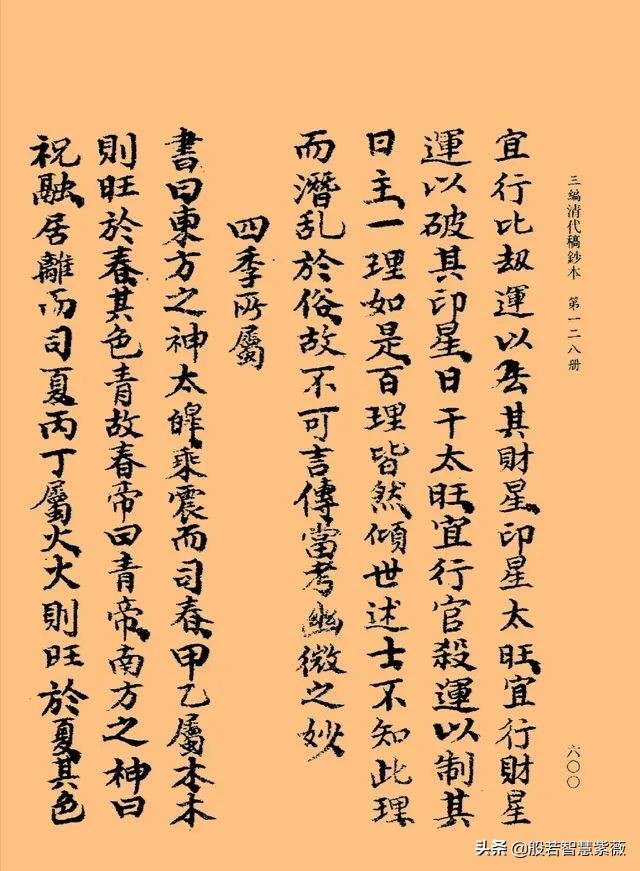 三編清代稿鈔本 第一二八册
六〇〇
宜行比刼運以去其財星印星太旺宜行財星
運以破其印星日干太旺宜行官殺運以制其
日主一理如是百理皆然傾世述士不知此理
而潛乱於俗故不可言傳當考幽微之妙
四季所屬
書曰東方之神太皥乘震而司春甲乙屬木木
則旺於春其色青故春帝曰青帝南方之神曰
祝融居離而司夏丙丁屬火火則旺於夏其色
头条 @般若智慧紫薇